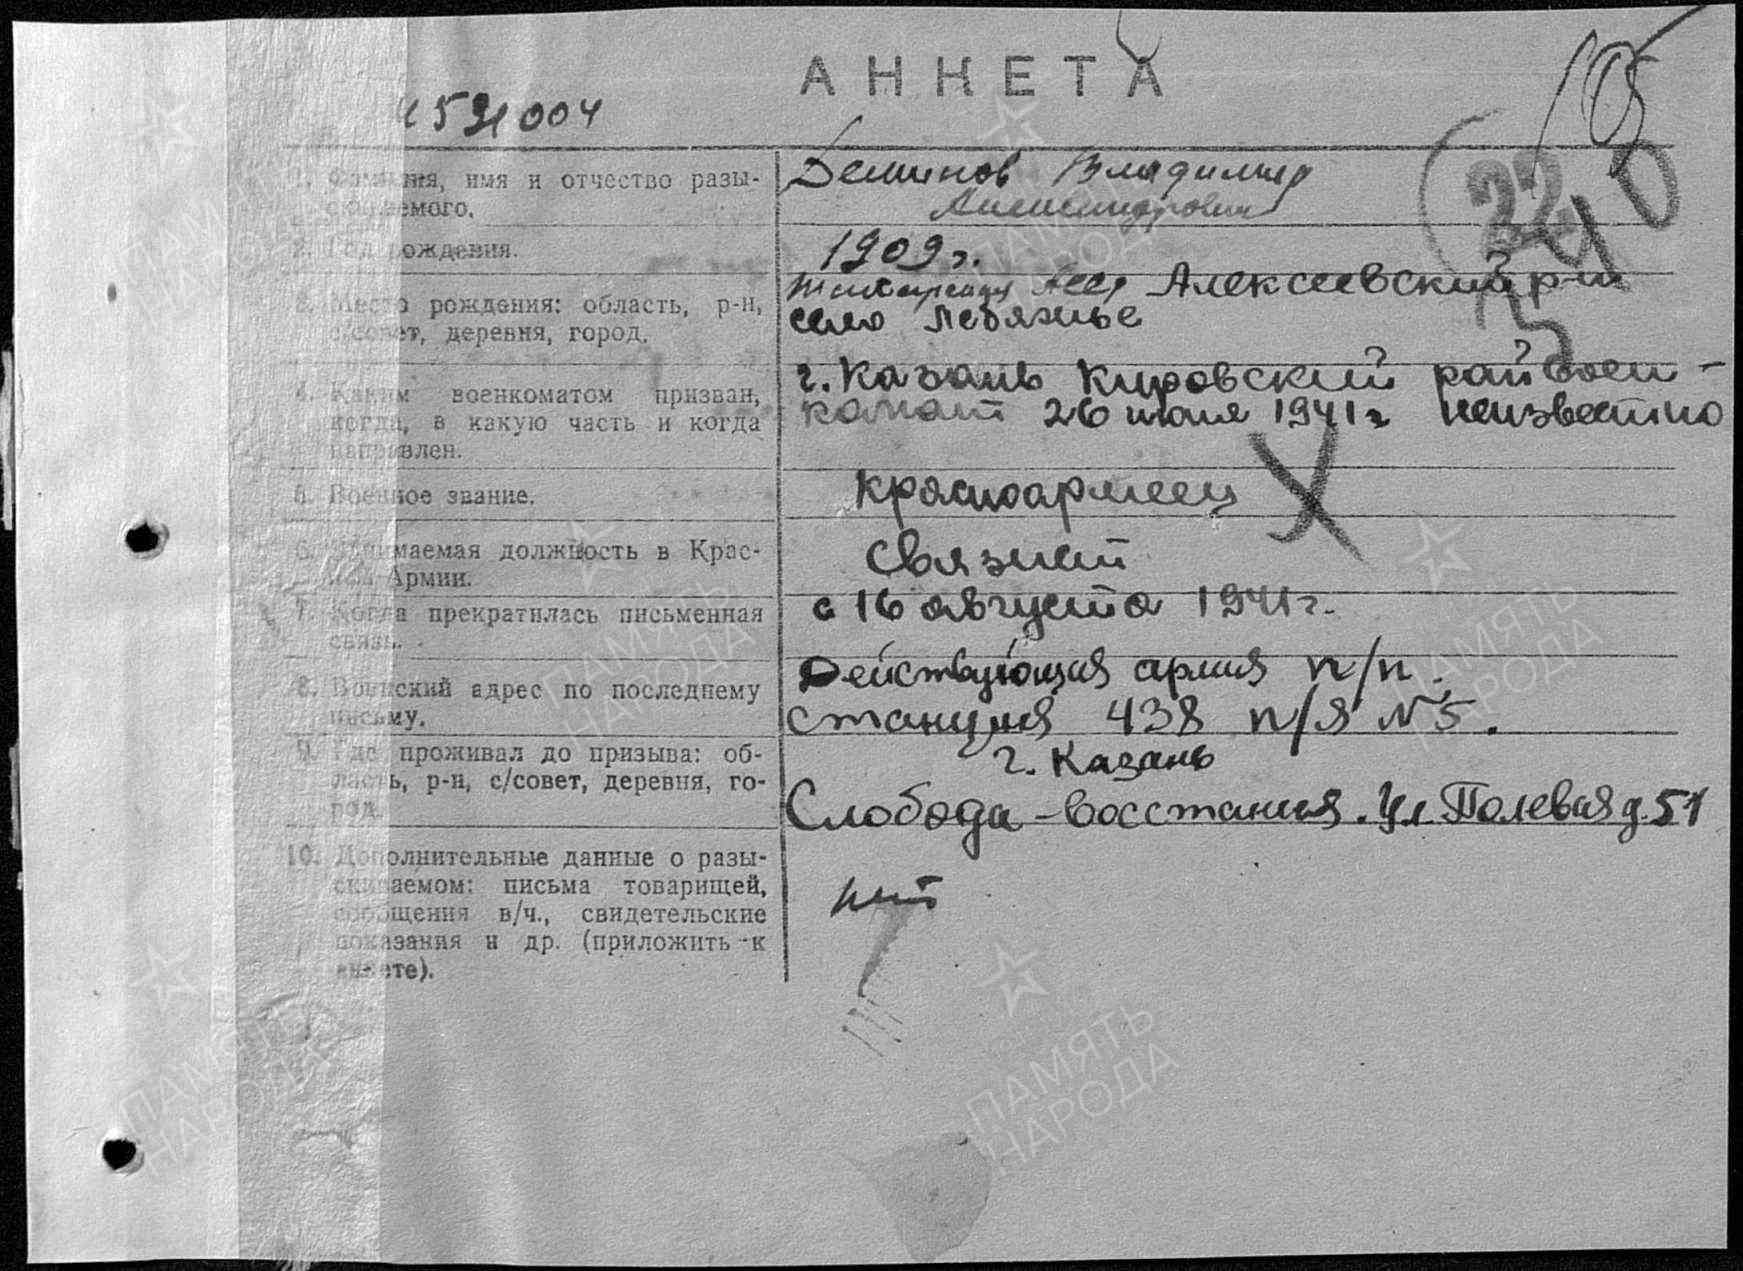 АНКЕТА
004
1. Фамилия, имя и отчество разы-
скиваемого.
Деминов Владимир
Александрович
2. Год рождения.
1909 г.
3. Место рождения: область, р-н,
с/совет, деревня, город.
Алексеевский р-н
село Лебяжье
4. Каким военкоматом призван,
когда, в какую часть и когда
направлен.
г. Казань Кировский райвоен-
комат 26 июля 1941 г неизвестно
5. Военное звание.
красноармеец
6. Занимаемая должность в Крас-
ной Армии.
Связист
7. Когда прекратилась письменная
связь.
с 16 августа 1941 г.
8. Воинский адрес по последнему
письму.
Действующая армия п/п.
станция 438 п/я №5.
9. Где проживал до призыва: об-
ласть, р-н, с/совет, деревня, го-
род.
г. Казань
Слобода-Восстания. Ул Полевая д. 51
10. Дополнительные данные о разы-
скиваемом: письма товарищей,
сообщения в/ч., свидетельские
показания и др. (приложить к
анкете).
нет
ПАМЯТЬ
НАРОДА